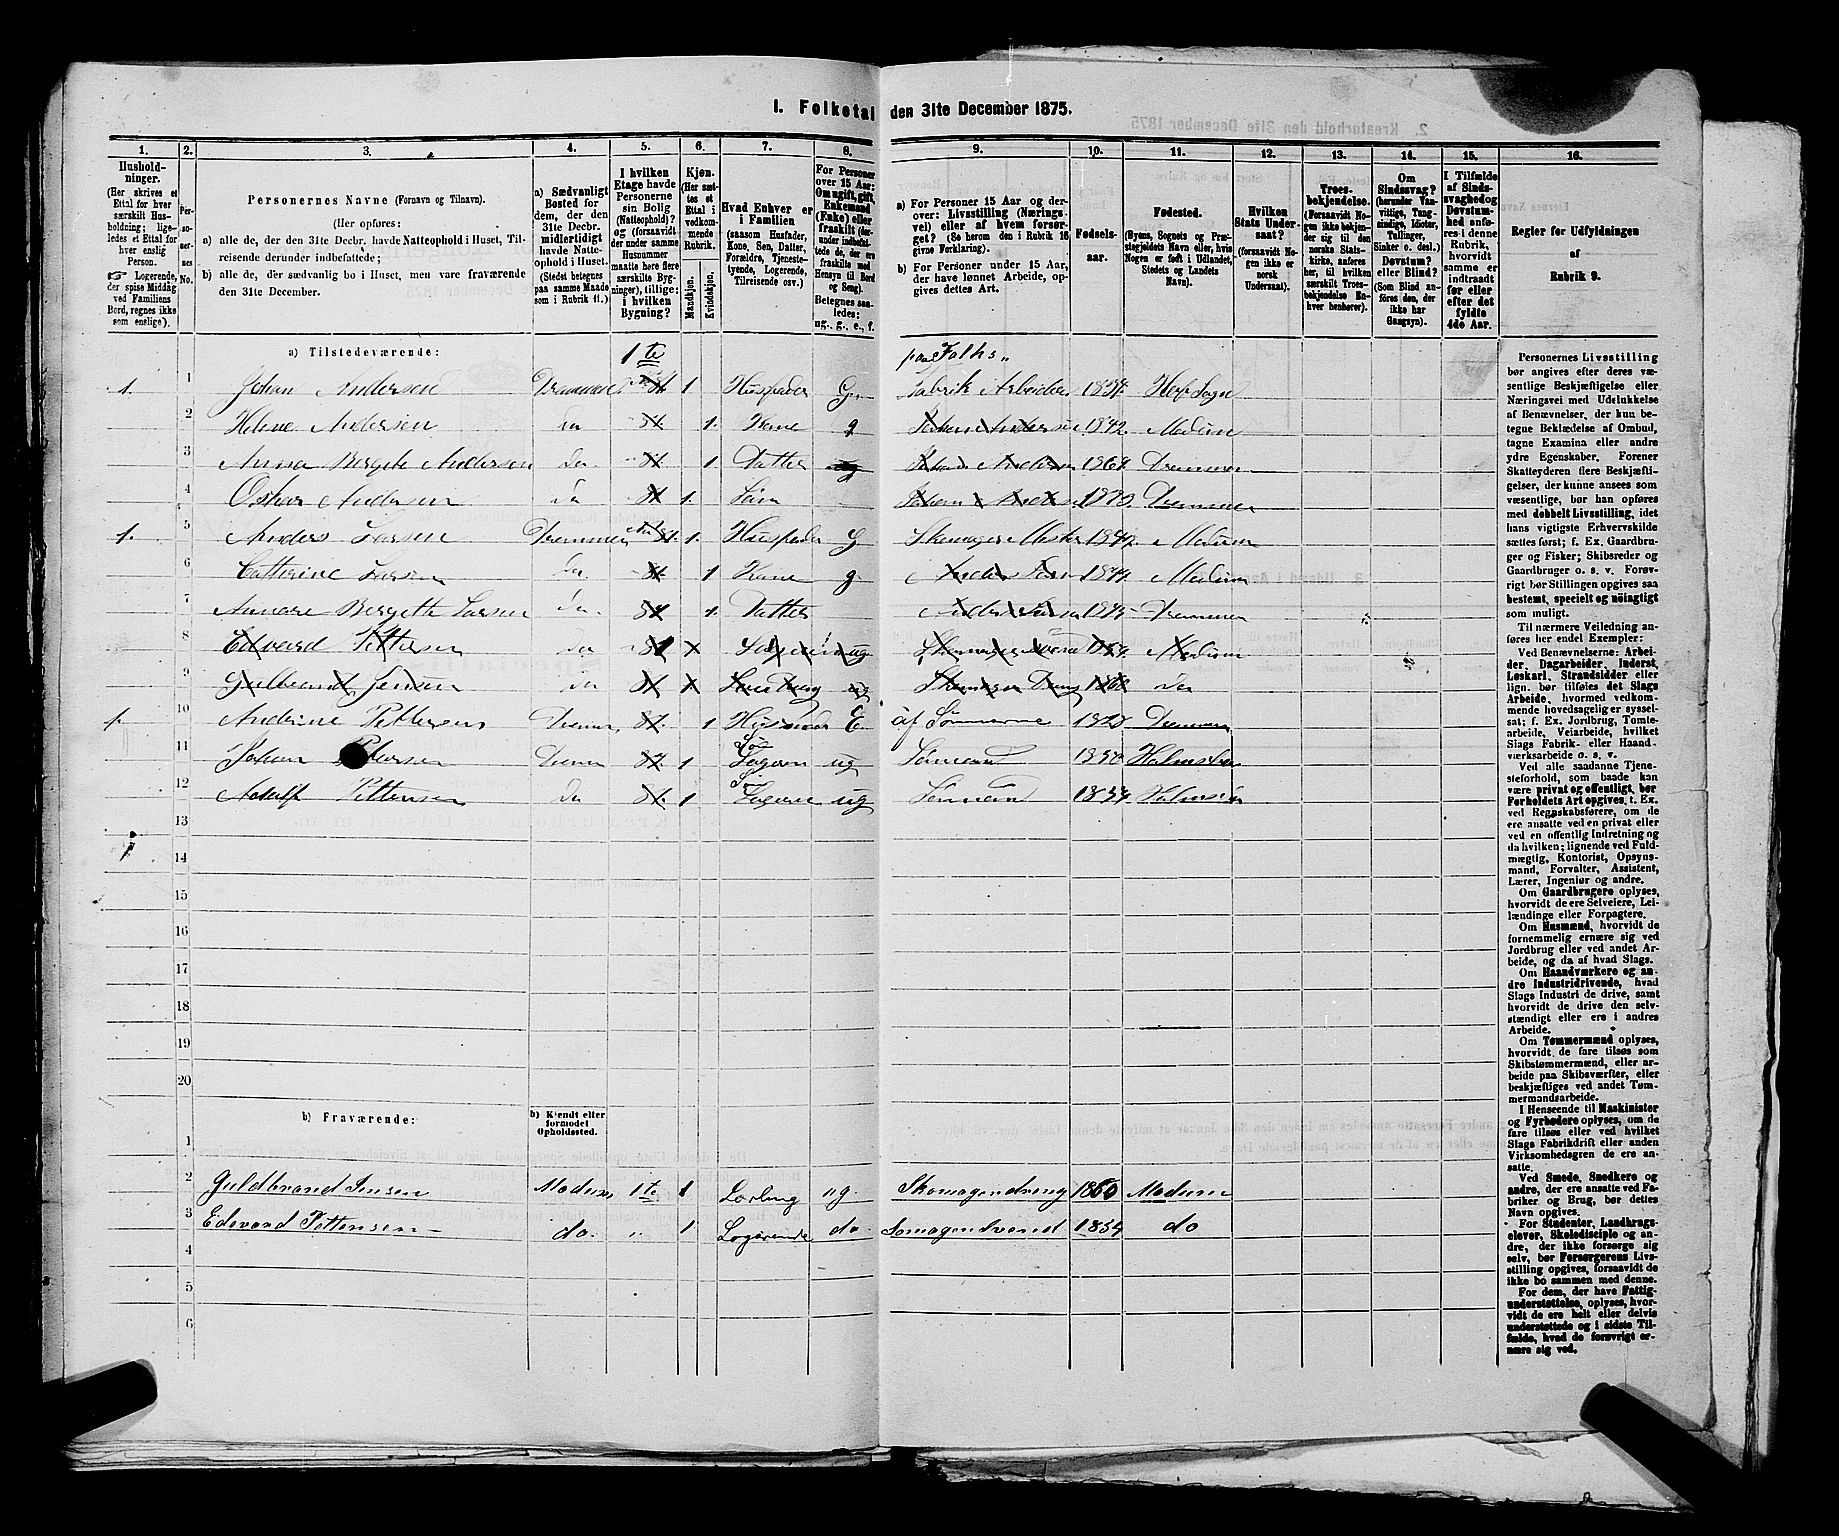 I. Folketal den 31te December 1875.
1. 2. 3. 4. 5. 6. 7. 8. 9. 10. 11. 12. 13. 14. 15. 16.
Husholdninger.
(Her skrives et
Ettal for hver
særskilt Husholdning; ligeledes et Ettal for
hver enslig
Person.
Logerende,
der spise Middag
ved Familiens
Bord, regnes ikke
som enslige).
Personernes No.
Personernes Navne (Fornavn og Tilnavn).
(Her opføres:
a) alle de, der den 31te Decbr. havde Natteophold i Huset, Tilreisende derunder indbefattede;
b) alle de, der sædvanlig bo i Huset, men vare fraværende
den 31te December.
a) Sædvanligt
Bosted for
dem, der den
31te Decbr.
midlertidigt
havde Natteophold i Huset.
(Stedet betegnes
paa samme Maade
som i Rubrik 11.)
I hvilken
Etage havde
Personerne
sin Bolig
(Natteophold)?
og (forsaavidt
der under samme
Husnummer
maatte høre flere
særskilte Bygninger), tillige:
i hvilken
Bygning?
Kjøn.
(Her sættes et
Ettal i
vedkommende
Rubrik.
Mandkjøn.
Kvindekjøn.
Hvad Enhver er
i Familien
(saasom Husfader,
Kone, Søn, Datter,
Forældre, Tjenestetyende, Logerende,
Tilreisende osv.)
For Personer
over 15 Aar:
Om ugift, gift,
Enkemand
(Enke) eller
fraskilt (derunder indbefattede de, der ere
fraskilte med
Hensyn til Bord
og Seng).
Betegnes saaledes:
ug., g., e., f.
a) For Personer 15 Aar og derover: Livsstilling (Næringsvei) eller af hvem forsørget? (Se herom den i Rubrik 16
givne Forklaring).
b) For Personer under 15 Aar,
der have lønnet Arbeide, opgives dettes Art.
Fødselsaar.
Fødested.
(Byens, Sognets og Præstegjeldets Navn eller, hvis
Nogen er født i Udlandet,
Stedets og Landets
Navn).
Hvilken
Stats Undersaat?
(forsaavidt Nogen ikke er
norsk
Undersaat).
Troesbekjendelse.
(Forsaavidt Nogen ikke bekjender sig til den
norske Statskirke, anføres
her, til hvilken
særskilt Troesbekjendelse Enhver henhører).
Om
Sindssvag?
(herunder Vanvittige, Tungsindige, Idioter,
Tullinger,
Sinker o. desl.)
Døvstum?
eller Blind?
(Som Blind anføres den, der
ikke har
Gangsyn).
I Tilfælde
af Sindssvaghed og
Døvstumhed anføres i denne
Rubrik,
hvorvidt
samme er
indtraadt
før eller
efter det
fyldte
4de Aar.
Regler for Udfyldningen
af
Rubrik 9.
a) Tilstedeværende: 1te paa Folks
1. 1 Johan Andersen Drammen 1 Husfader G. Fabrik Arbeider
2 Helene Andersen Do 1. Kone g Johan Andersen 1842 Modum
3 Anna Bergete Andersen Do. 1 Datter ug Andersen Drammen
4 Oskar Andersen Do 1. Søn Johan Drammen
1. 5 Anders Larsen Drammen 1. Husfader G Skomager Mester Modum
6 Catherine Larsen Do. 1 Kone g. Anders Larsen Modum
7 Annare Bergette Larsen Do. 1. Datter Anders Larsen Drammen
8 Edvard Pettersen Do ug Skomager Svend Modum
9 Gulbrand Jensen Do ug Skomager Dreng Do
1. 10 Andrine Pettersen 1 E. af Sønnerne Drammen
11 Johan 1 Søn Logerer ug Sømand
12 Adolf Pettersen Do 1 Søn Logerer ug Sømand
13
14
15
16
17
18
19
20
b) Fraværende: b) Kjendt eller
formodet
Opholdssted.
1
2 Guldbrand Jensen Modum 1te 1 Lærling ug. Skomagerdreng 1860 Modum
3 Edevard Pettersen do. " 1 Logerende do. 1854 do
4
5
6
Personernes Livsstilling
bør angives efter deres væsentlige Beskjæftigelse eller
Næringsvei med Udelukkelse
af Benævnelser, der kun betegne Beklædelse af Ombud,
tagne Examina eller andre
ydre Egenskaber. Forener
Skatteyderen flere Beskjæftigelser, der kunne ansees som
væsentlige, bør han opføres
med dobbelt Livsstilling, idet
hans vigtigste Erhvervskilde
sættes først; f. Ex. Gaardbruger og Fisker; Skibsreder og
Gaardbruger o. s. v. Forøvrigt bør Stillingen opgives saa
bestemt, specielt og nøiagtigt
som muligt.
Til nærmere Veiledning anføres her endel Exempler:
Ved Benævnelserne: Arbeider, Dagarbeider, Inderst,
Løskarl, Strandsidder eller
lign. bør tilføies det Slags
Arbeide, hvormed vedkommende hovedsagelig er sysselsat; f. Ex. Jordbrug, Tomtearbeide, Veiarbeide, hvilket
Slags Fabrik- eller Haandværksarbeide o. s. v.
Ved alle saadanne Tjenesteforhold, som baade kan
være privat og offentligt, bør
Forholdets Art opgives, t. Ex.
ved Regnskabsførere, om de
ere ansatte ved en privat eller
ved en offentlig Indretning og
da hvilken; lignende ved Fuldmægtig, Kontorist, Opsynsmand, Forvalter, Assistent,
Lærer, Ingeniør og andre.
Om Gaardbrugere oplyses,
hvorvidt de ere Selveiere, Leilændinge eller Forpagtere.
Om Husmænd, hvorvidt de
fornemmelig ernære sig ved
Jordbrug eller ved andet Arbeide, og da af hvad Slags.
Om Haandværkere og andre Industridrivende, hvad
Slags Industri de drive, samt
hvorvidt de drive den selvstændigt eller ere i andres
Arbeide.
Om Tømmermænd oplyses,
hvorvidt de fare tilsøs som
Skibstømmermænd, eller arbeide paa Skibsværfter, eller
beskjæftiges ved andet Tømmermandsarbeide.
I Henseende til Maskinister
og Fyrbødere oplyses, om de
fare tilsøs eller ved hvilket
Slags Fabrikdrift eller anden
Virksomhedsgren de ere ansatte.
Ved Smede, Snedkere og
andre, der ere ansatte ved Fabriker og Brug, bør dettes
Navn opgives.
For Studenter, Landbrugselever, Skoledisciple og andre, der ikke forsørge sig
selv, bør Forsørgerens Livsstilling opgives, forsaavidt de
ikke bo sammen med denne.
For dem, der have Fattigunderstøttelse, oplyses, hvorvidt de ere helt eller delvis
understøttede og i sidste Tilfælde, hvad de forøvrigt ernære sig ved.